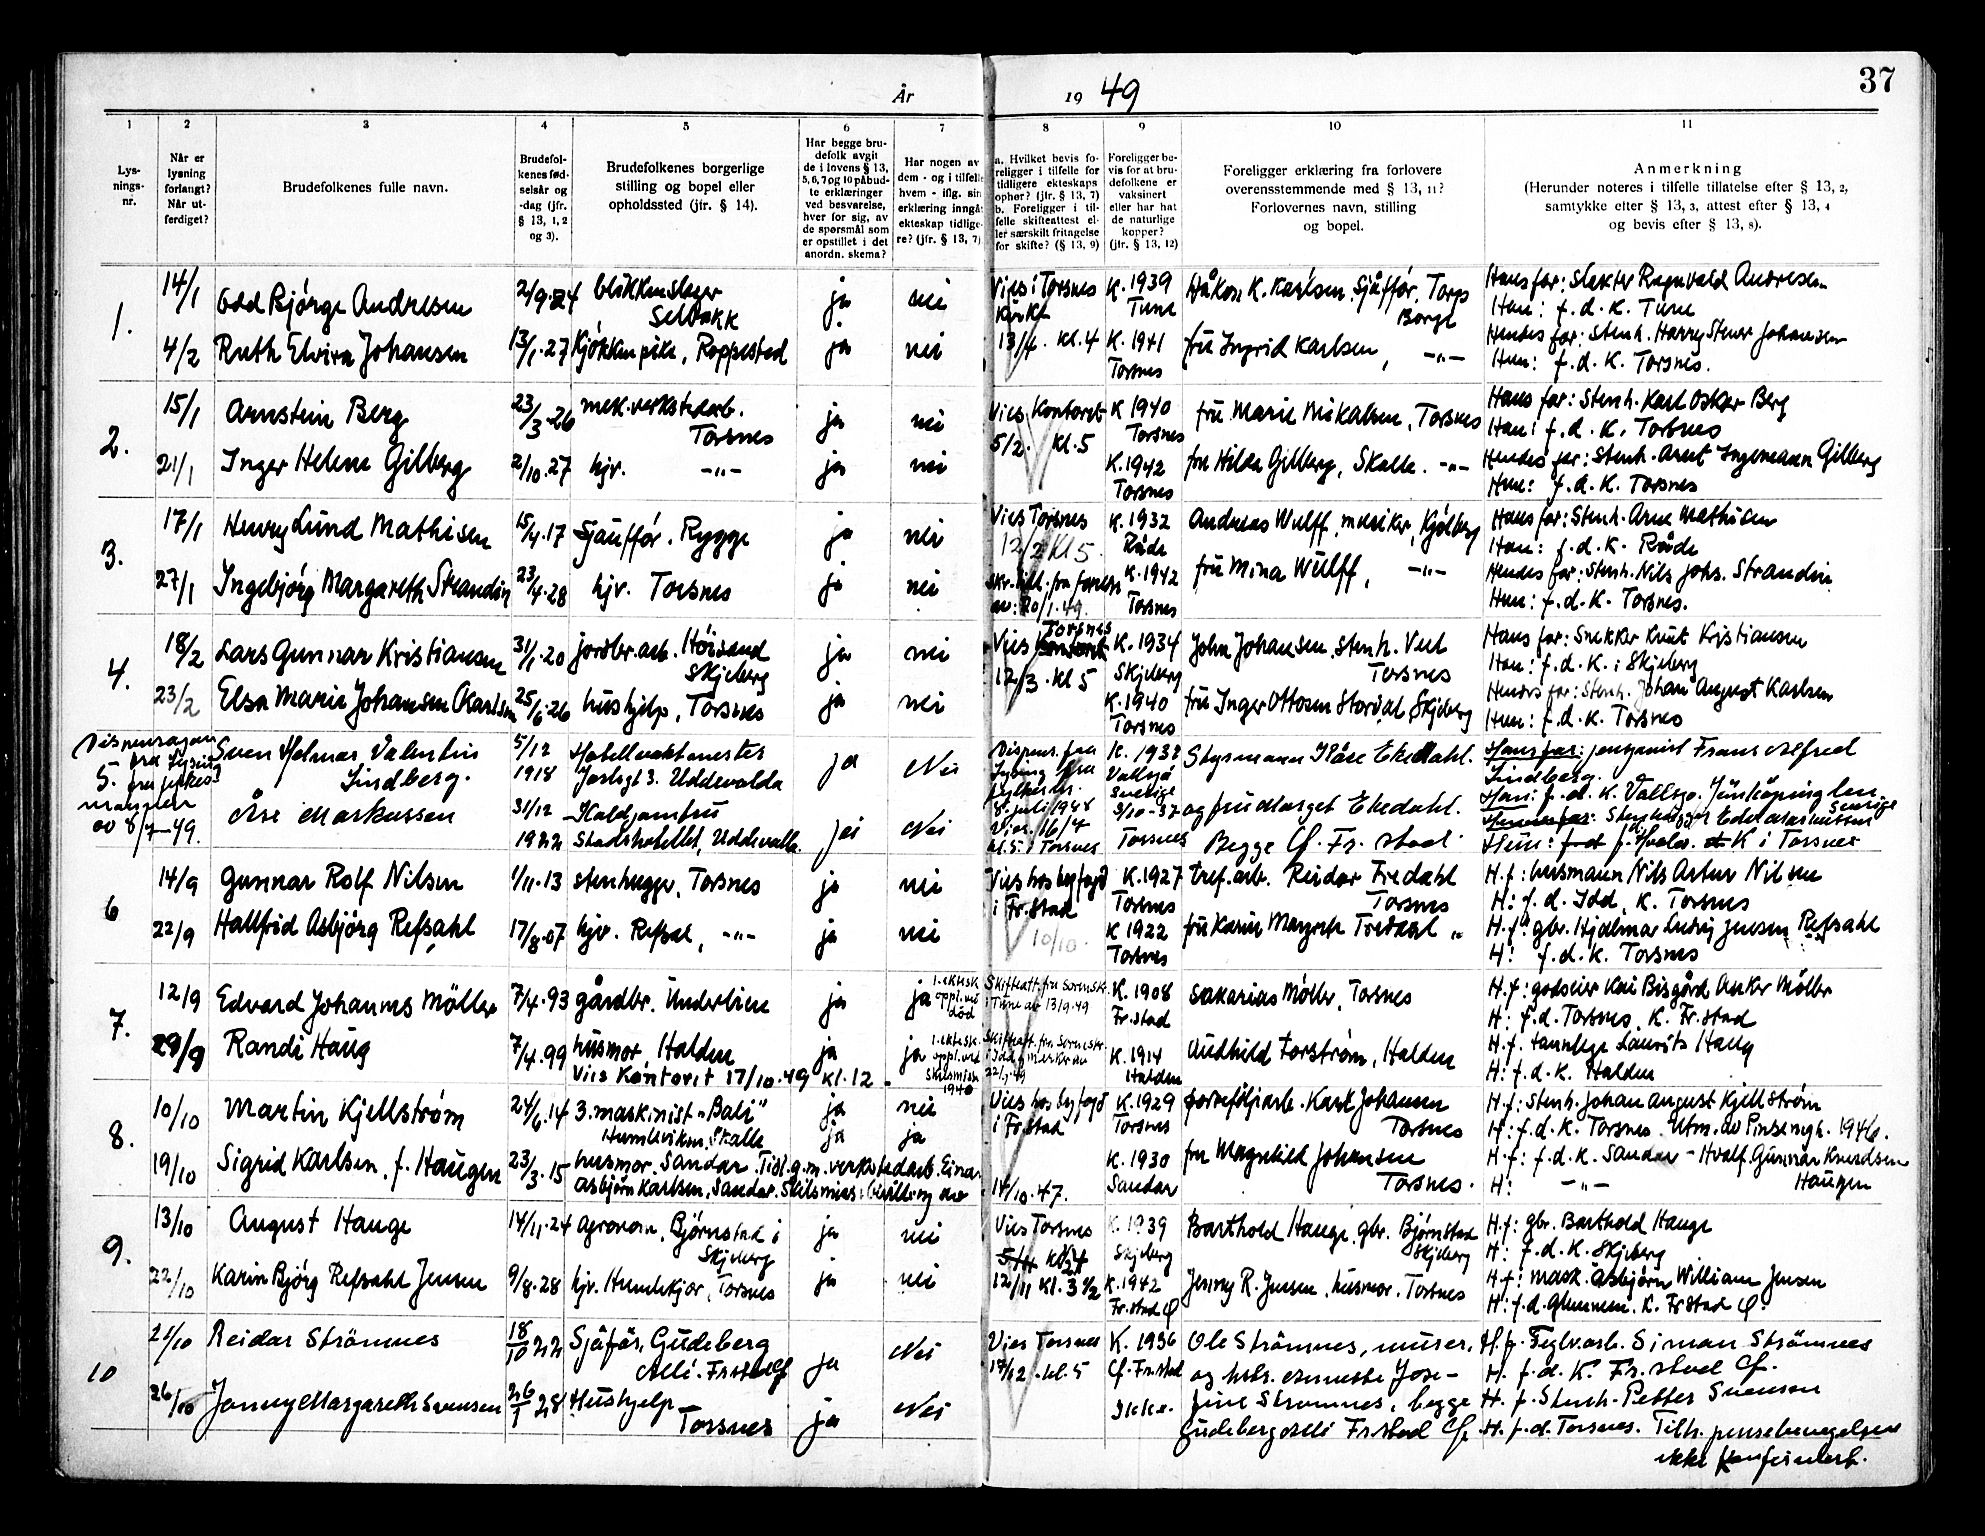 År 19 49
37
1
2
3
4
5
6
7
8
9
10
11
Lys-
nings-
nr.
Når er
lysning
forlangt?
Når ut-
ferdiget?
Brudefolkenes fulle navn.
Brudefol-
kenes fød-
selsår og
-dag (jfr.
§ 13, 1, 2
og 3).
Brudefolkenes borgerlige
stilling og bopel eller
opholdssted (jfr. § 14).
Har begge bru-
defolk avgit
de i lovens § 13,
5, 6, 7 og 10 påbud-
te erklæringer
ved besvarelse,
hver for sig, av
de spørsmål som
er opstillet i det
anordn. skema?
Har nogen av
dem - og i tilfelle
hvem - iflg. sin
erklæring inngå
ekteskap tidlige-
re? (jfr. § 13, 7)
a. Hvilket bevis fo-
religger i tilfelle for
tidligere ekteskaps
ophør? (jfr. § 13, 7)
b. Foreligger i til-
felle skifteattest el-
ler særskilt fritagelse
for skifte? (§ 13, 9)
Foreligger be-
vis for at bru-
defolkene er
vaksinert
eller har hat
de naturlige
kopper?
(jfr. § 13, 12)
Foreligger erklæring fra forlovere
overensstemmende med § 13, 11?
Forlovernes navn, stilling
og bopel.
Anmerkning
(Herunder noteres i tilfelle tillatelse efter § 13, 2,
samtykke efter § 13, 3, attest efter § 13, 4
og bevis efter § 13, 8).
1.
14/1 Odd Bjørge Andresen 2/9.24 blikkenslager Selbakk ja nei Vies i Torsnes kirke K. 1939 Tune Håkon K. Karlsen, Sjåffør, Torp Borge Hans far: Slakter Ragnvald Andresen
Han: f.d.K. Tune
4/2 Ruth Elvira Johansen 13/1.27 Kjökkenpike, Roppestad ja nei 13/4. kl.4 K. 1941 Torsnes fru Ingrid Karlsen, -"- Hendes far: Stenh. Harry Stener Johansen
Hun: f.d.K. Torsnes.
2.
15/1 Arnstein Berg 23/3-26 mek.verkstedarb. Torsnes ja nei Vies. Kontoret K 1940 Torsnes fru Marie Mikalsen, Torsnes Hans far: Stenh. Karl Oskar Berg
Han: f.d.K. Torsnes
21/1 Inger Helene Gilberg 2/10.27 hjv. -"- ja nei 5/2. kl.5 K.1942 Torsnes fru Hilda Gilberg, Skalle. -"- Hendes far: Stenh. Arnt Ingemann Gilberg
Hun: f.d.K. Torsnes
3.
17/1 Henry Lund Mathisen 15/4.17 Sjauffør. Rygge ja nei Vies Torsnes 12/2 kl 5. K. 1932 Råde Andreas Wulff, musiker, Kjölberg Hans far: Stenh. Arne Mathisen
Han: f.d.K. Råde
27/1 Ingebjörg Margareth Strandin 23/4.28 hjv. Torsnes ja nei av: 20/1.49. K. 1942 Torsnes fru Mina Wulff, -"- Hendes far: Stenh. Nils Johs. Strandin
Hun: f.d.K. Torsnes.
4.
18/2 Lars Gunnar Kristiansen 31/1.20 jordbr.arb. Höisand Skjeberg ja nei Vies Kontoret Torsnes K. 1934 Skjeberg John Johansen, stenh. Veel Torsnes Hans far: Snekker Knut Kristiansen
Han: f.d.K. i Skjeberg
23/2 Elsa Marie Johansen Karlsen 25/6.26 hushjelp, Torsnes ja nei 12/3. kl 5 K. 1940 Torsnes fru Inger Ottosen Stordal, Skjeberg Hendes far: Stenh. Johan August Karlsen
Hun: f.d.K. Torsnes
Dispensasjon fra lysing
5.
av 8/7-49.
Sven Helmer Valentin Lindberg. 5/12 1918 Hotellvaktmester Uddevalla ja Nei Dispens. fra Lysing K. 1932 Vallsjö Sverige Styrmann Kåre Ekedahl. Hans far: Frans Alfred Lindberg.
Han: f.d.K. Vallsjø. Jönköping len. Sverige
Åse Markussen 31/12 1922 Kaldjomfru Stadshotellet, Uddevalla. ja Nei Vies. 16/4 kl.5. i Torsnes 3/10-37 Torsnes og fru Margot Ekedahl. Begge Gl. Fr.stad.
Hun: f.d. f. Hvaler. K i Torsnes
6
14/9 Gunnar Rolf Nilsen 1/11.13 stenhugge, Torsnes ja nei Vies hos byfogd i Fr.stad K.1927 Torsnes tref.arb. Reidar Fredahl Torsnes H.f: husmann Nils Artur Nilsen
H: f.d. Idd, K. Torsnes
22/9 Hallfrid Asbjörg Refsahl 17/8.07 hjv. Refsal, -"- ja nei 10/10. K 1922 Torsnes fru Karin Margrete Fredahl " H.f: gbr. Hjalmar Ludvig Jensen Refsahl
H: f.d.K. Torsnes
7.
12/9 Edvard Johannes Möller 7/4.93 gårdbr. Underlien ja ja 1. ektesk. oppl. ved död Skifteatt. fra Sorenskr. i Tune av 13/9.49 K. 1908 Fr.stad Sakarias Möller, Torsnes H.f: godseier Kai Bisgård Anker Möller
H: f.d. Torsnes, K. Fr.stad
29/9 Randi Haug 7/4.99 husmor, Halden ja ja 1. ektesk. oppl. ved skilsmisse 1940 Skifteatt. fra Sorenskr. K. 1914 Halden Audhild Torström, Halden H.f. tannlege Laurits Haug
H: f.d.K. Halden
Vies Kontoret 17/10.49 kl.12
8.
10/10 Martin Kjellström 24/6.14 3. maskinist "Bali" Humlevikon, Skalle ja nei Vies hos byfogd i Fr.stad K.1929 Torsnes Karl Johansen Torsnes H.f: Stenh. Johan August Kjellström
H: f.d.K. Torsnes. Utm. av Pinsemgh. 1946.
19/10 Sigrid Karlsen, f. Haugen 23/3.15 husmor. Sandar. Tidl. g.m. verkstedarb. Einar Asbjörn Karlsen, Sandar. Skilsmissebevilling av 14/10.47. ja ja K. 1930 Sandar fru Magnhild Johansen Torsnes. H.f: f.d.K. Sandar - Hvalf. Gunnar Knudsen Haugen
H: -"-
9.
13/10 August Hauge 14/11.24 agronom, Björnstad i Skjeberg ja nei Vies Torsnes K. 1939 Skjeberg Barthold Hauge, gbr. Björnstad Skjeberg H.f: gbr. Barthold Hauge
H: f.d.K. Skjeberg
22/10 Karin Bjørg Refsahl Jensen 9/8.28 hjv. Humlekjær, Torsnes ja nei 12/11 kl. 3 1/2 K.1942 Fr.stad Gl Jenny R. Jensen, husmor. Torsnes H.f: mask. Asbjörn William Jensen
H: f.d. Glemmen. K. Fr.stad Gl.
10
21/10 Reidar Strömnes 18/10 22 Sjåfør, Gudeberg Allé. Fr.stad Gl ja Nei Vies Torsnes 17/12. kl.5 K. 1936 Gl. Fr.stad Ole Strömnes, murer, H.f. Teglv.arb. Simon Strömnes
H. f.d.K. Fr.stad Gl.
26/10 Jenny Margareth Svensen 26/1 28 Hushjelp Torsnes ja Nei Ikke. og hans Josefine Strömnes, begge Gudeberg allé Fr.stad Gl. H.f. Stenh. Petter Svensen
H. f.d. Torsnes. Tilh. pinsebevegelsen
ikke konfirmert.